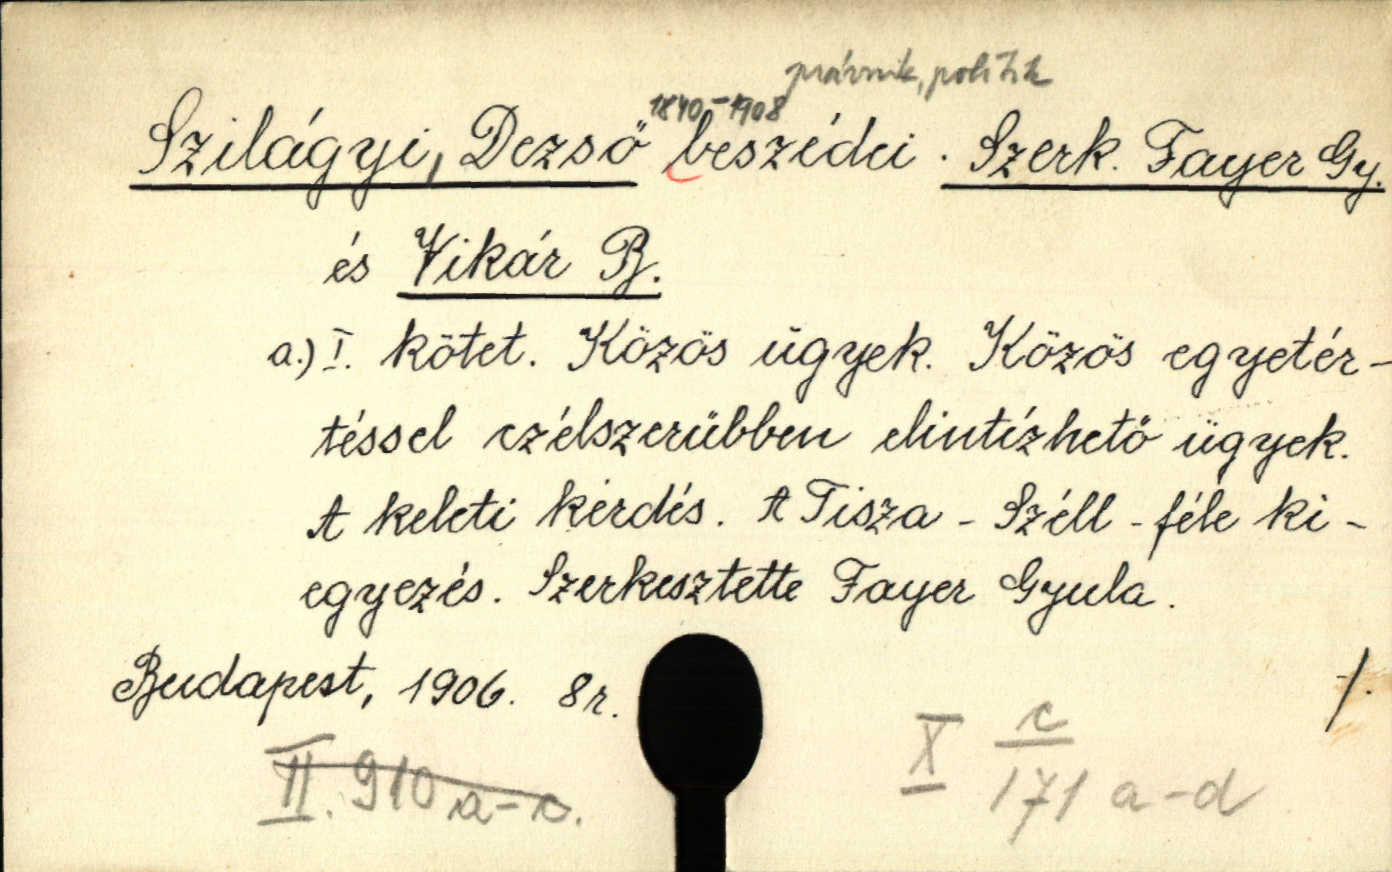 právnik, politik
1840-1908
Szilágyi, Dezső beszédei. Szerk. Fayer Gy.
és Vikár B.
a.) I. kötet. Közös ügyek. Közös egyetér-
téssel czélszerübben elintézhető ügyek.
A keleti kérdés. A Tisza - Széll - féle ki-
egyezés. Szerkesztette Fayer Gyula.
Budapest, 1906. 8r. ./.
II. 910 a-c.
X c/171 a-d